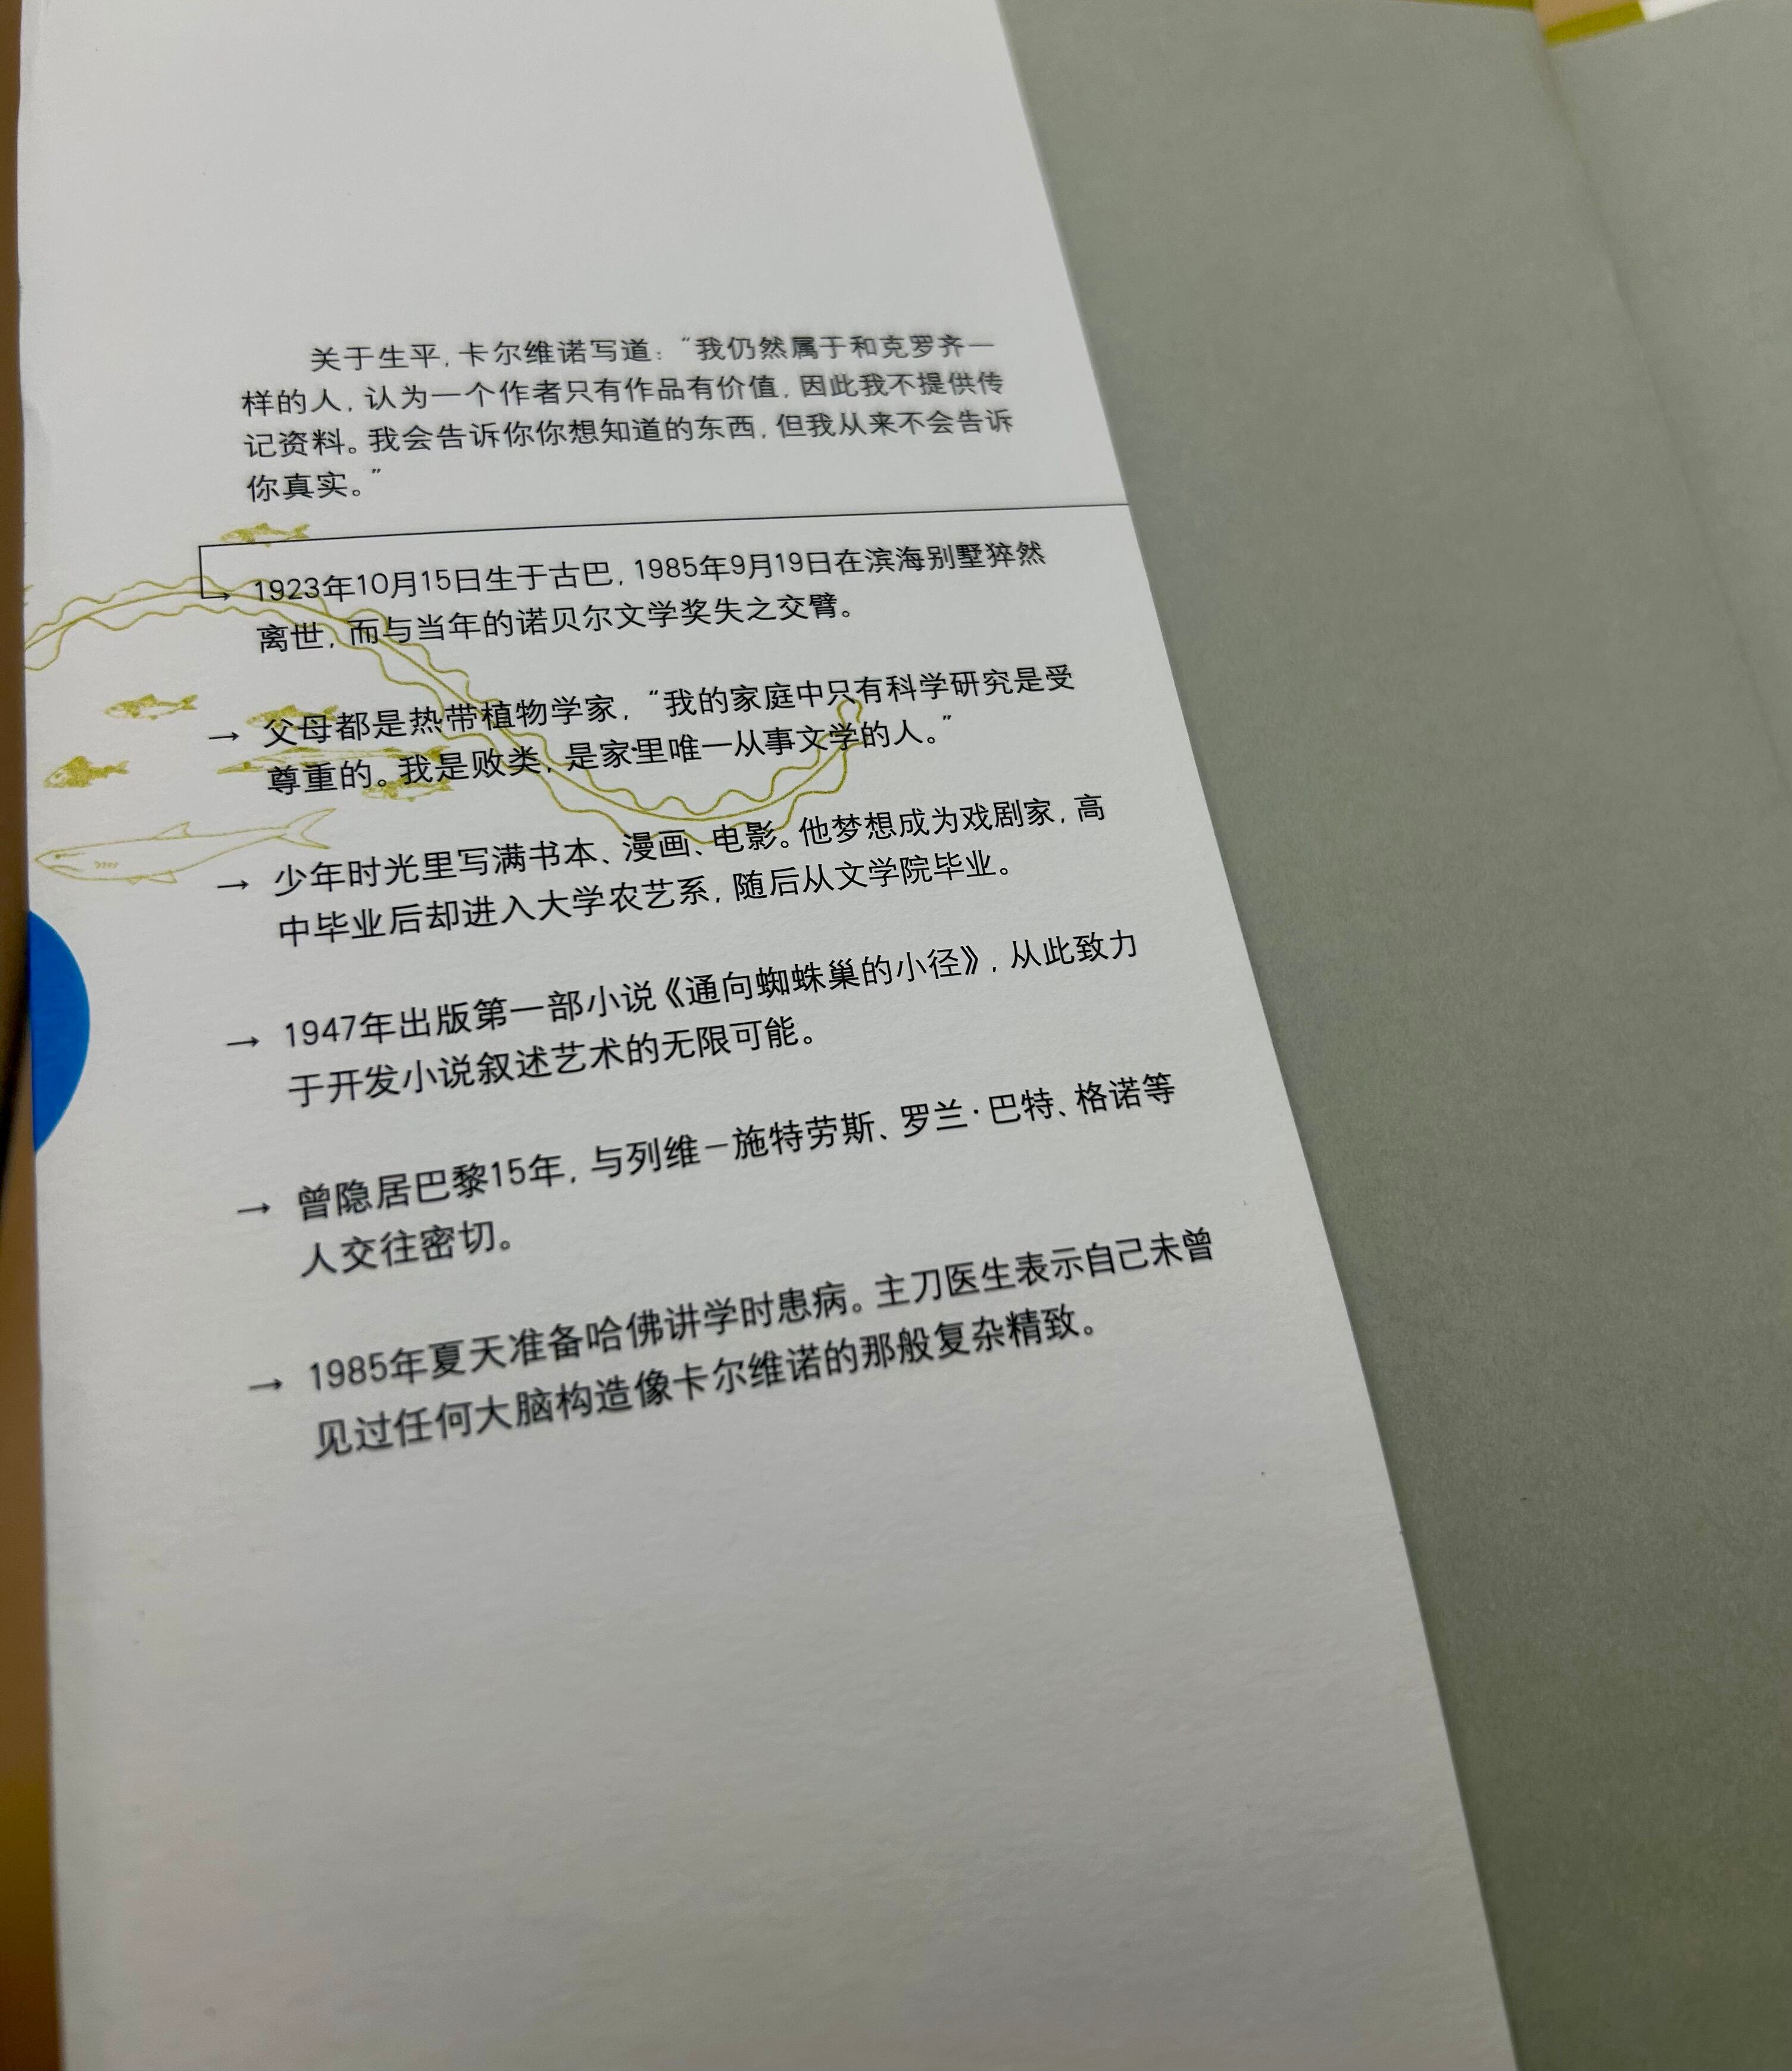 关于生平,卡尔维诺写道:“我仍然属于和克罗齐一
样的人,认为一个作者只有作品有价值,因此我不提供传
记资料。我会告诉你你想知道的东西,但我从来不会告诉
你真实。”
→ 1923年10月15日生于古巴,1985年9月19日在滨海别墅猝然
离世,而与当年的诺贝尔文学奖失之交臂。
→ 父母都是热带植物学家,“我的家庭中只有科学研究是受
尊重的。我是败类,是家里唯一从事文学的人。”
→ 少年时光里写满书本、漫画、电影。他梦想成为戏剧家,高
中毕业后却进入大学农艺系,随后从文学院毕业。
→ 1947年出版第一部小说《通向蜘蛛巢的小径》,从此致力
于开发小说叙述艺术的无限可能。
→ 曾隐居巴黎15年,与列维-施特劳斯、罗兰·巴特、格诺等
人交往密切。
→ 1985年夏天准备哈佛讲学时患病。主刀医生表示自己未曾
见过任何大脑构造像卡尔维诺的那般复杂精致。